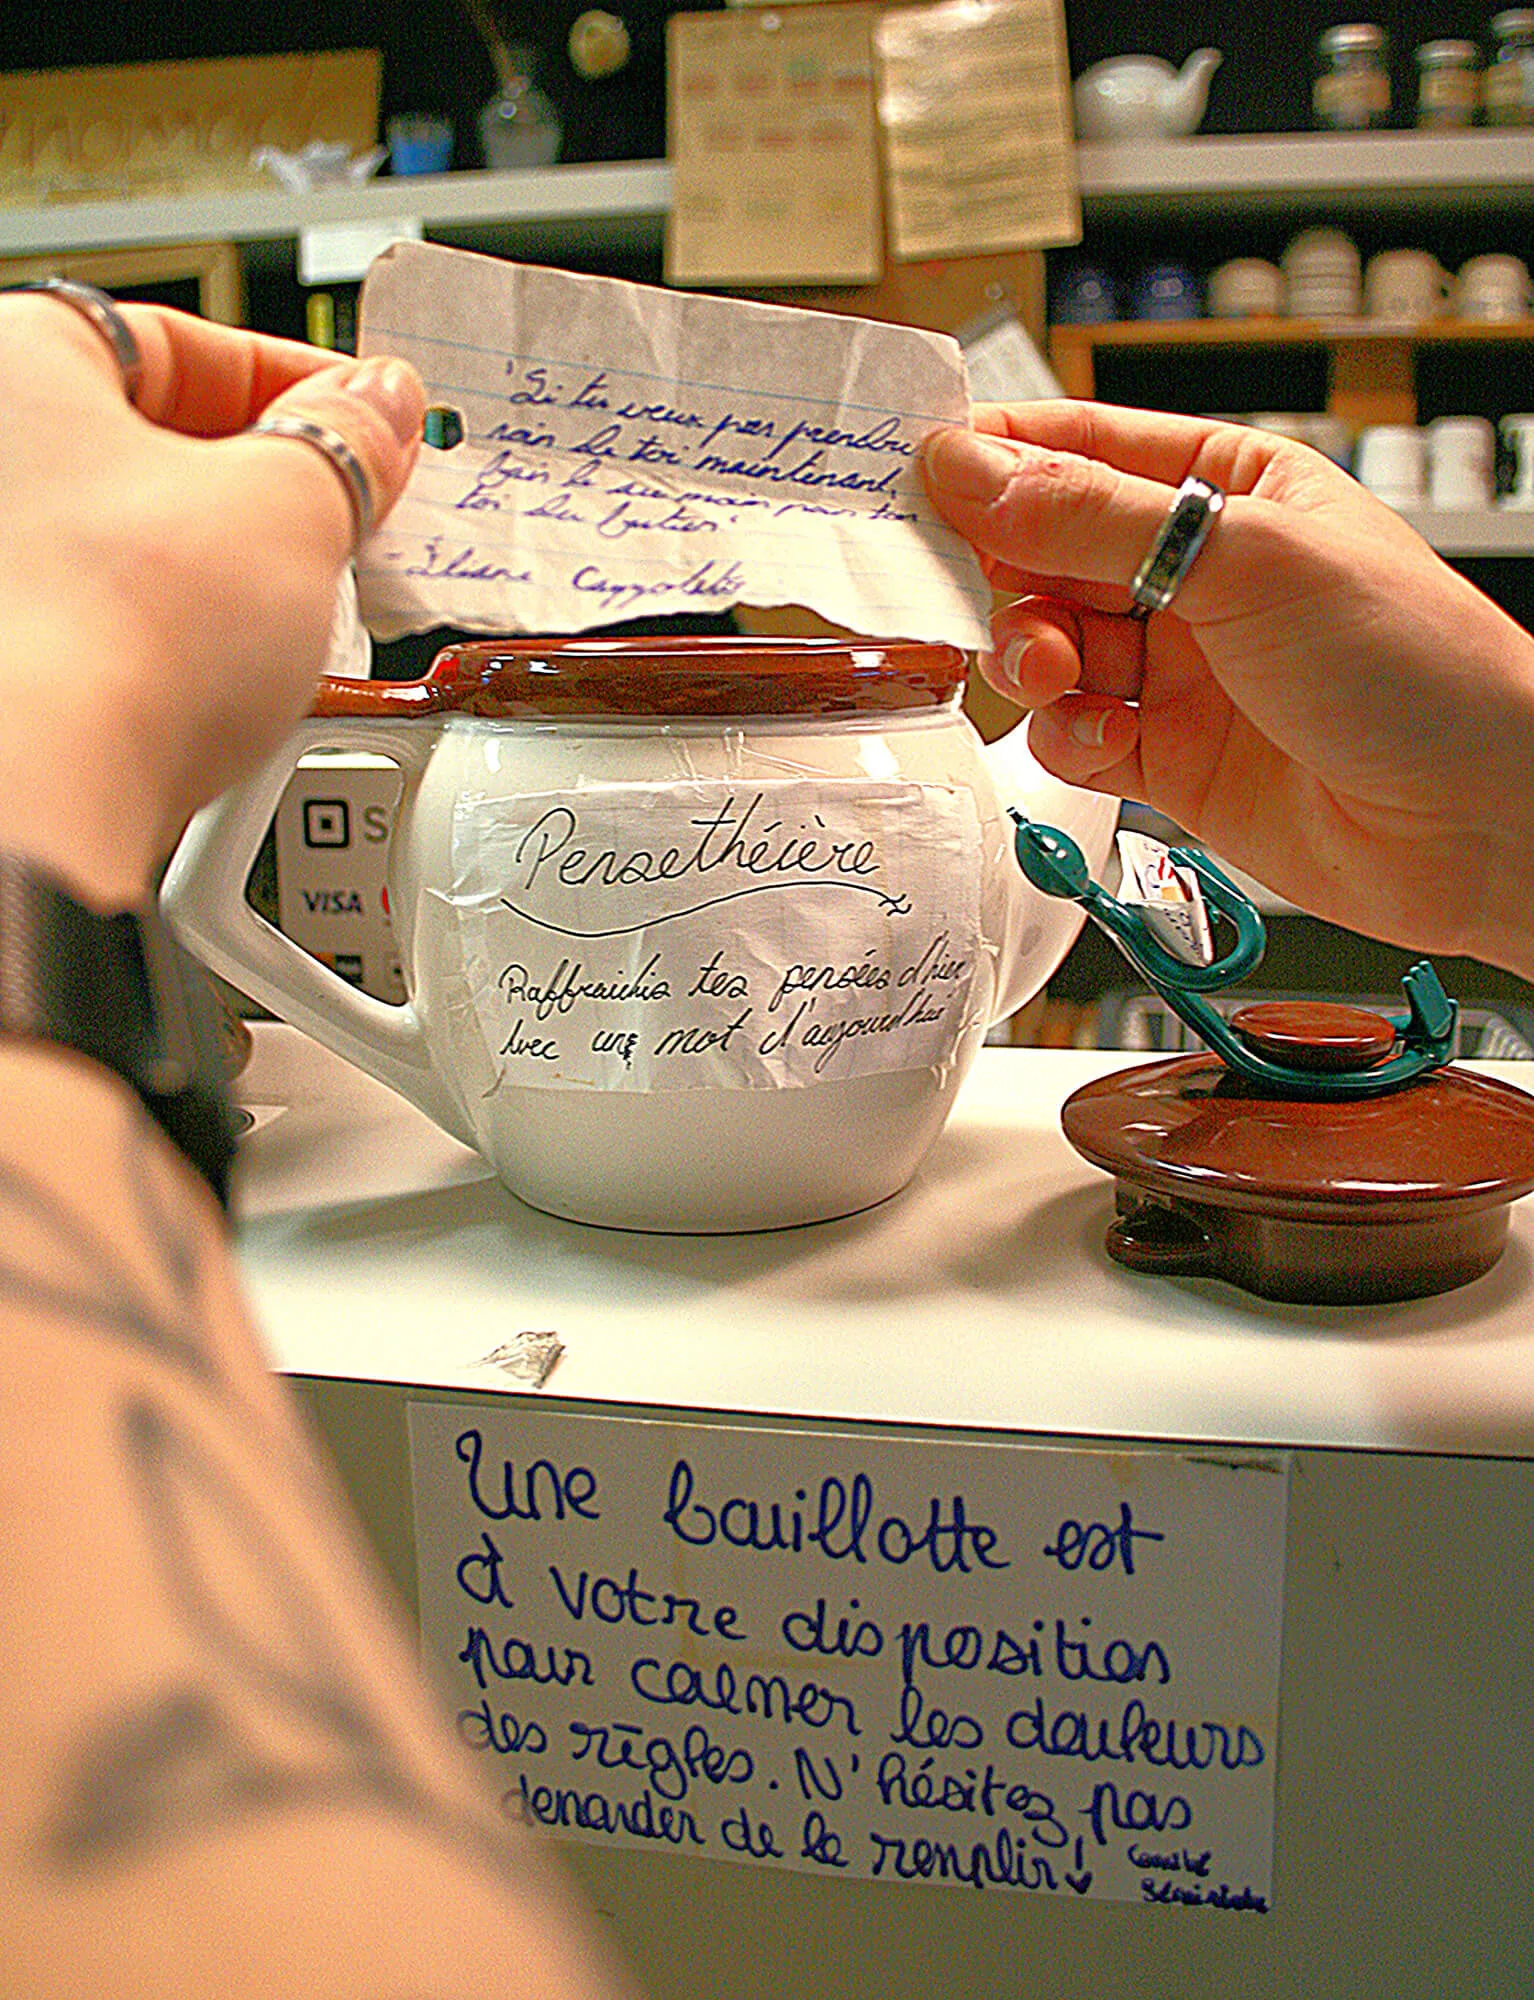 "Si tu veux pas prendre
soin de toi maintenant,
fais le au moins pour ton
toi du futur"
- Éliane Cazzoletti
S
VISA
Pensethéière
Raffraichis tes pensées d'hier
Avec un mot d'aujourd'hui
Une bouillotte est
à votre disposition
pour calmer les douleurs
des règles. N'hésitez pas
demander de la remplir!